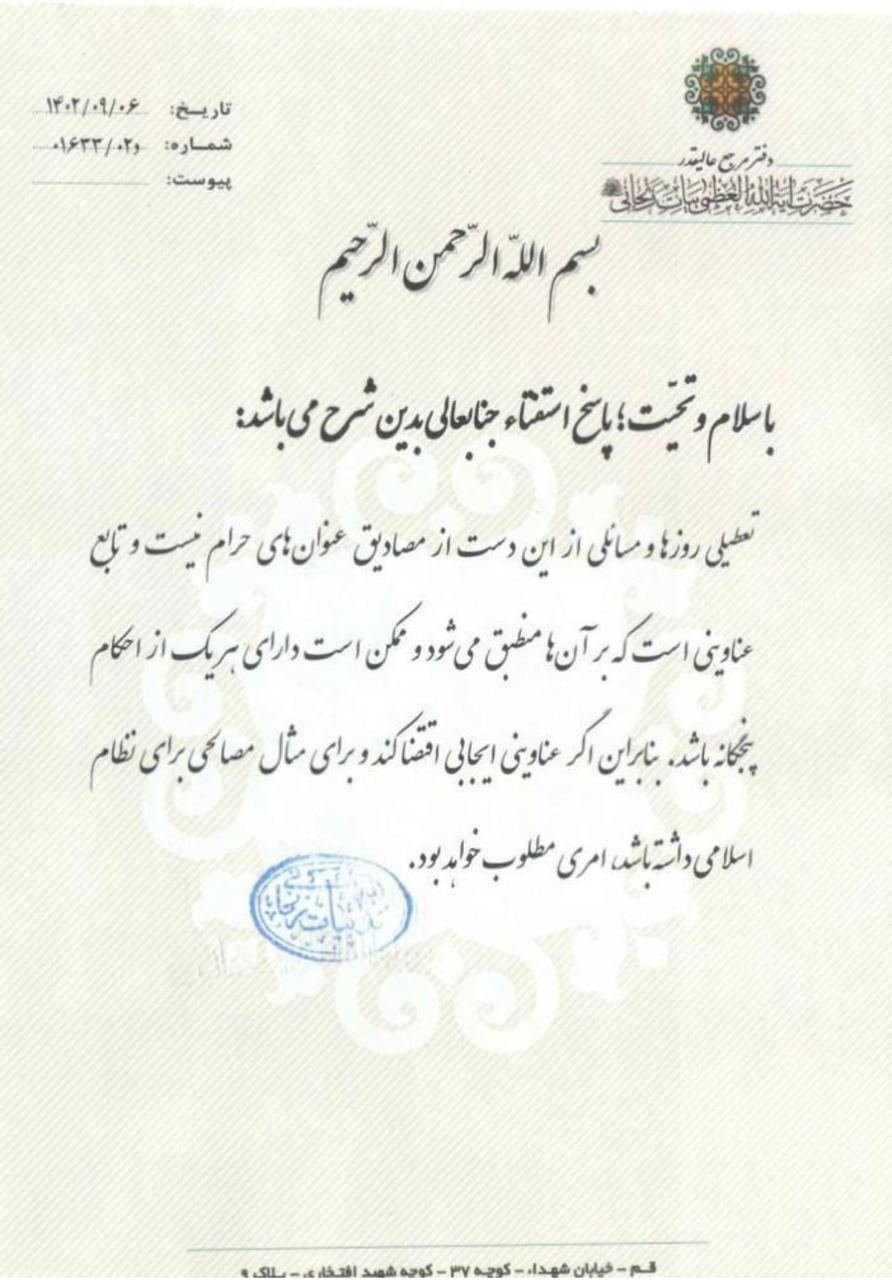 دفتر مرجع عالیقدر
حضرت آیة الله العظمی بیات زنجانی
تاریخ: ۱۴۰۲/۰۹/۰۶
شماره: ۰۱۶۳۳/۰۲و
پیوست:
بسم اللّه الرّحمن الرّحیم
با سلام و تحیّت؛ پاسخ استفتاء جنابعالی بدین شرح می باشد:
تعطیلی روزها و مسائلی از این دست از مصادیق عنوان های حرام نیست و تابع
عناوینی است که بر آن ها منطبق می شود و ممکن است دارای هر یک از احکام
پنجگانه باشد. بنابراین اگر عناوینی ایجابی اقتضا کند و برای مثال مصالحی برای نظام
اسلامی داشته باشد، امری مطلوب خواهد بود.
بیات زنجانی
قـم - خیابان شهداء - کوچـه ۳۷ - کوچه شهید افتخاری - پـلاک ۹